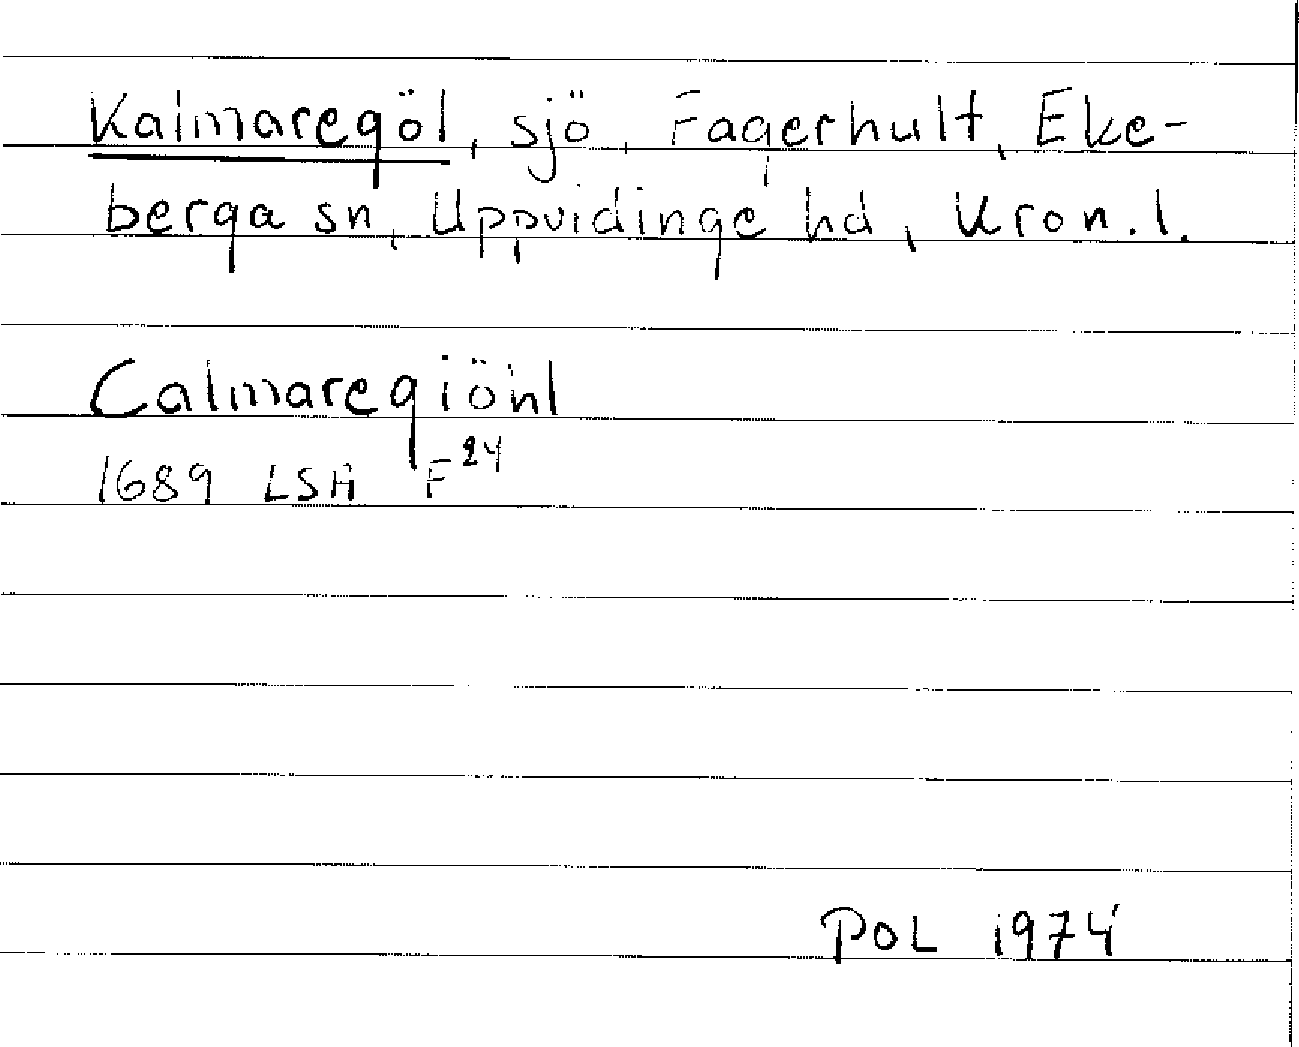 Kalmaregöl, sjö, Fagerhult, Eke-
berga sn, Uppvidinge hd, Kron. l.
Calmaregiöhl
1689 LSA F 24
POL 1974